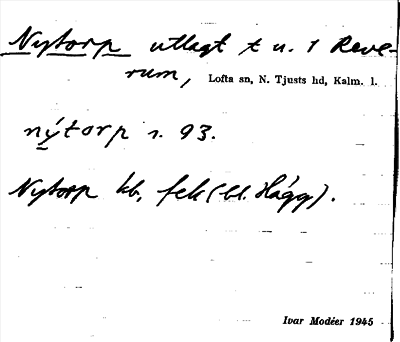 Nytorp utlagt t u. 1 Reve-
rum, Lofta sn, N. Tjusts hd, Kalm. l.
nýtorp s. 93.
Nytorp kb, fek (bl. Hägg).
Ivar Modéer 1945